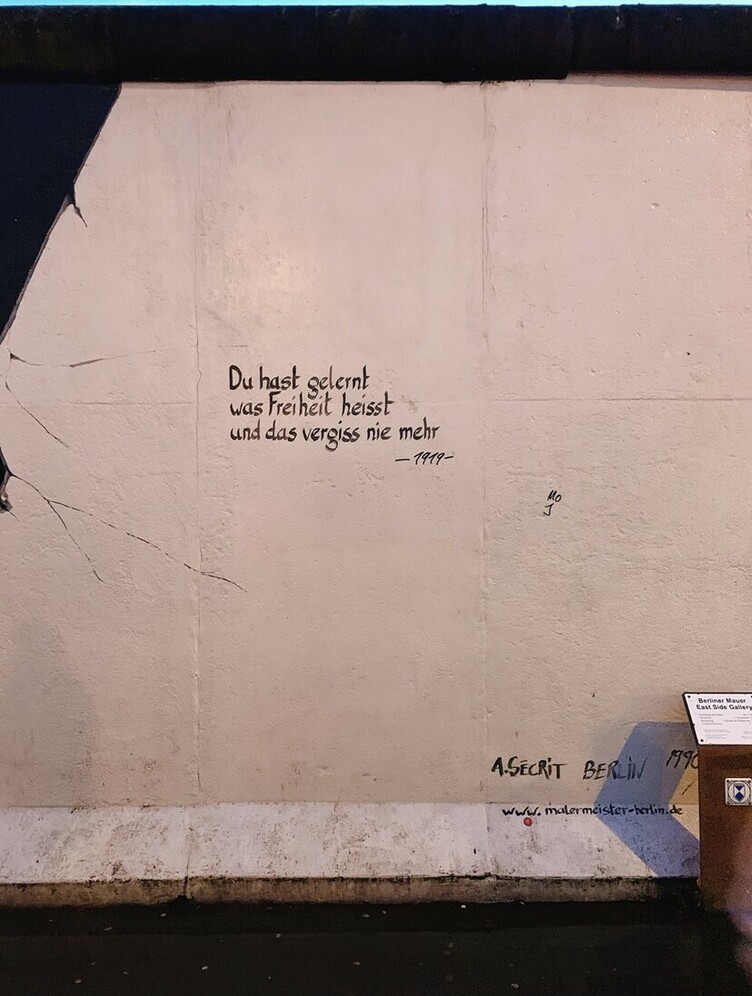 Du hast gelernt
was Freiheit heisst
und das vergiss nie mehr
—1919—
Mo
J
A.SÉCRIT BERLIN 1990
www.malermeister-berlin.de
Berliner Mauer
East Side Gallery